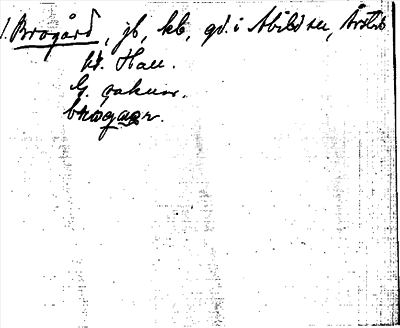 1. Brogård, jb, kb, gd. i Abild sn, Årstad
hd. Hall.
G. saknas.
broagaɼ.